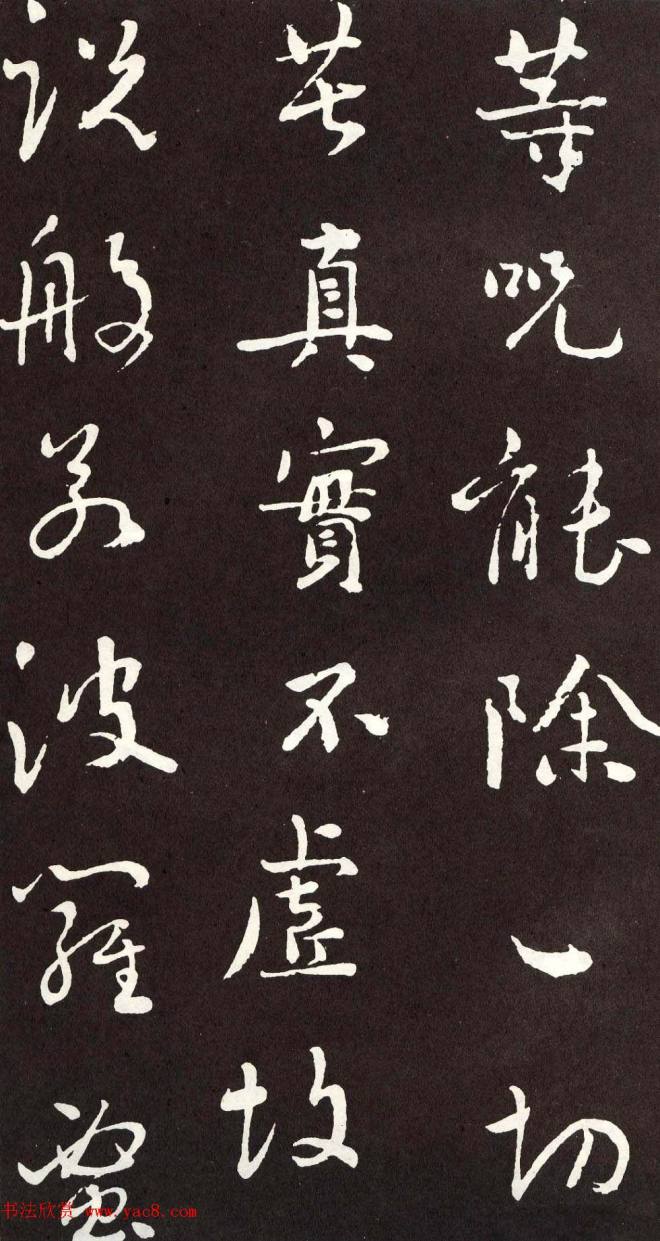 等呪能除一切
苦真實不虛故
説般若波羅蜜
书法欣赏 www.yac8.com